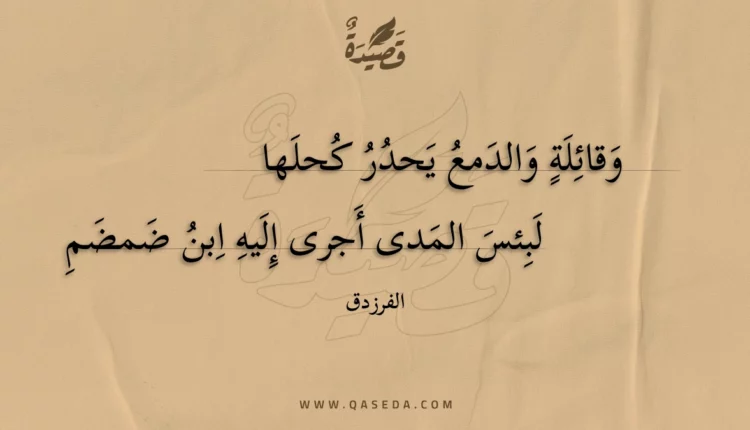 قَصِيدَةٌ
وَقائِلَةٍ وَالدَمعُ يَحدُرُ كُحلَها
لَبِئسَ المَدى أَجرى إِلَيهِ اِبنُ ضَمضَمِ
الفرزدق
WWW.QASEDA.COM